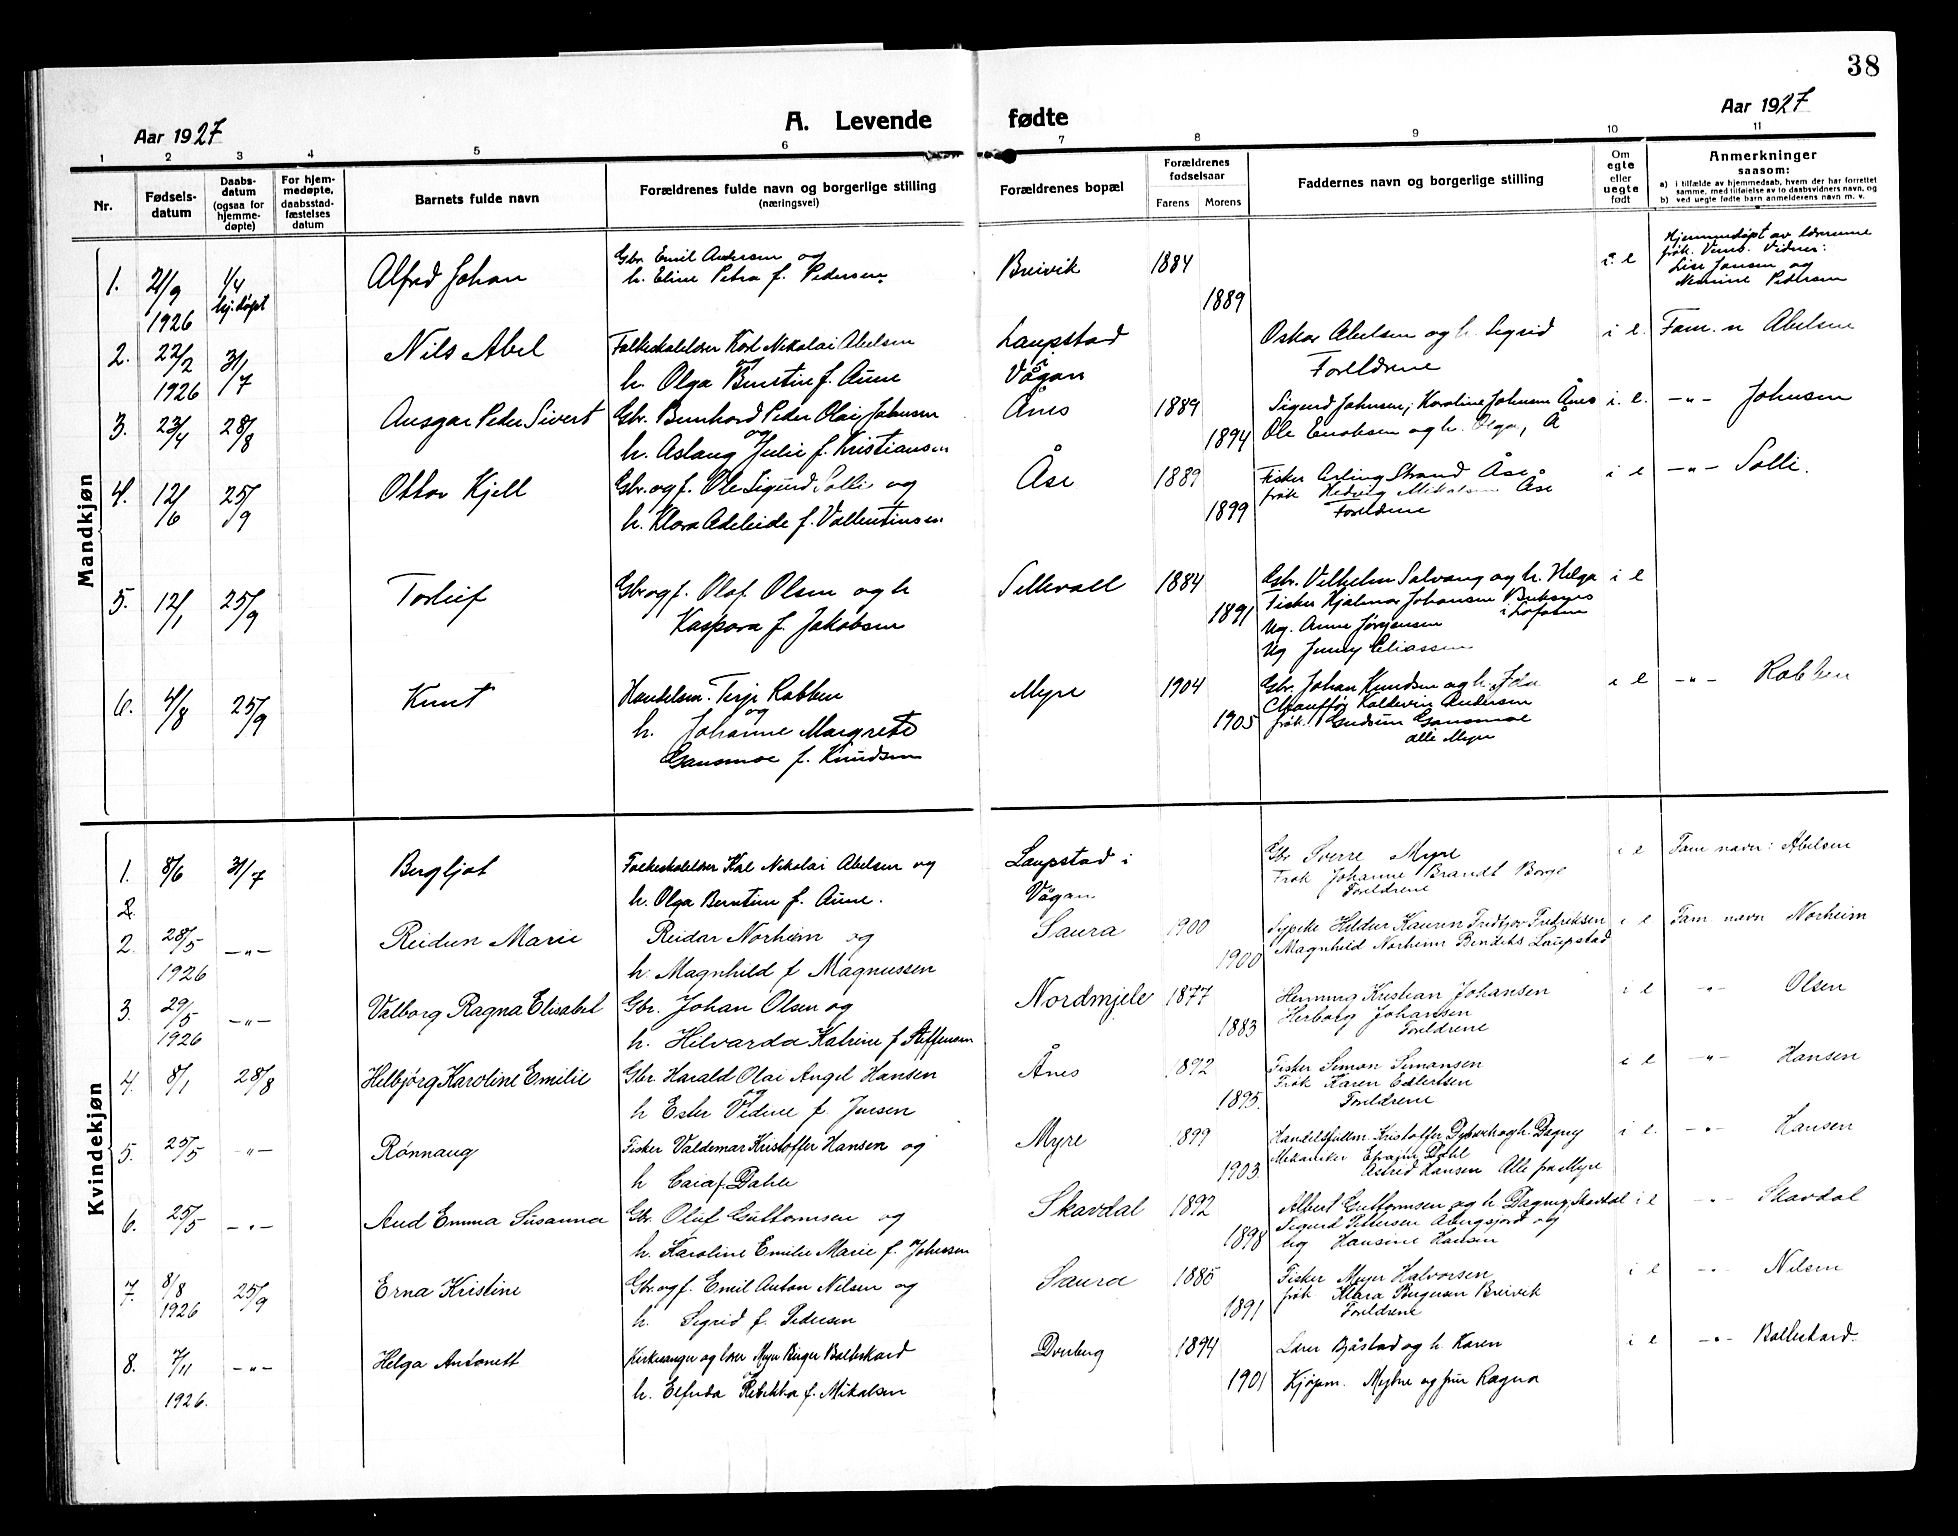 38
Aar 1927
A. Levende fødte
Aar 1927
1 2 3 4 5 6 7 8 9 10 11
Nr.
Fødsels-
datum
Daabs-
datum
(ogsaa for
hjemme-
døpte)
For hjem-
medøpte,
daabsstad-
fæstelses
datum
Barnets fulde navn
Forældrenes fulde navn og borgerlige stilling
(næringsvei)
Forældrenes bopæl
Forældrenes
fødselsaar
Farens Morens
Faddernes navn og borgerlige stilling
Om
egte
eller
uegte
født
Anmerkninger
saasom:
a) i tilfælde av hjemmedaab, hvem der har forrettet
samme, med tilføielse av to daabsvidners navn, og
b) ved uegte fødte barn anmelderens navn m. v.
Mandkjøn
1. 21/9 1926 1/4 hj.døpt Alfred Johan
Gbr. Emil Andersen og
h. Eline Petra f. Pedersen.
Breivik 1884 1889 i. e
Hjemmedøpt av lærerinne
frøk. Vidner:
Lise Jensen og
Pedersen
2. 22/2 1926 31/7 Nils Abel
Folkeskolelærer Karl Nikolai Abelsen
og
h. Olga Berntine f. Aune
Laupstad
i
Vågan
Oskar Abelsen og h. Sigrid
Foreldrene
i e. Fam. n Abelsen
3. 23/4 28/8 Ansgar Peder Sivert
Gbr. Bernhard Peder Olai Johnsen
og
h. Aslaug Julie f. Kristiansen
Ånes 1889 1894
Sigurd Johnsen, Karoline Johnsen Ånes
Ole Enoksen og h. Olga, Å
i. e. -"- Johnsen
4. 12/6 25/9 Ottar Kjell
Gbr. og f. Ole Sigurd Solli og
h. Klara Adeleide f. Vallentinsen
Åse 1889 1899
Fisker Erling Strand Åse
frøk Hedvig Mikalsen Åse
Foreldrene
i e -"- Solli.
5. 12/1 25/9 Torleif
Gbr og f. Olaf Olsen og h
Kaspara f. Jakobsen
Sellevoll 1884 1891
Gbr. Vilhelm Solvang og h. Helga
Fisker Hjalmar Johansen Buksnes
i Lofoten
Ug. Anne Jørgensen
Ug Jenny Eliassen
i e
6. 4/8 25/9 Knut
Handelsm. Terje Robben
og
h. Johanne Margrete
Gansmoe f. Knudsen
Myre 1904 1905
Gbr. Johan Knudsen og h. Ida
Chauffør Kaldevin Andersen
frøk. Gudrun Gansmoe
alle Myre
i e -"- Robben
Kvindekjøn
1. 8/6 31/7 Bergljot
Folkeskolelærer Karl Nikolai Abelsen og
h. Olga Berntine f. Aune.
Laupstad i
Vågan
Gbr Sverre Myre
Frøk Johanne Brandt Borge
Foreldrene
i e Fam navn: Abelsen
2.
2. 28/5 1926 -"- Reidun Marie
Reidar Norheim og
h. Magnhild f Magnussen
Saura 1900 1900
Sypike Hildur Kaurin Fridtjov Fredriksen
Magnhild Norheim Bendiks Laupstad
i e Fam navn Norheim
3. 29/5 1926 -"- Valborg Ragna Elisabet
Gbr. Johan Olsen og
h. Hilvarda Katrine f Steffensen
Nordmjele 1877 1883
Henning Kristian Johansen
Herborg Johansen
Foreldrene
i e -"- Olsen
4. 8/1 28/8 Helbjørg Karoline Emilie
Gbr Harald Olai Angel Hansen
og
h Ester Vedine f. Jensen
Ånes 1892 1895.
Fisker Simon Simonsen
Frøk Karen Edlertsen
Foreldrene
i e -"- Hansen
5. 25/5 -"- Rønnaug
Fisker Valdemar Kristoffer Hansen og
h Caia f. Dahle
Myre 1899 1903
Handelsfullm. Kristoffer og h. Dagny
Mekaniker Efraim Dahl
Astrid Hansen Alle fra Myre
i e. -"- Hansen
6. 25/5 -"- Aud Emma Susanna
Gbr. Oluf Guttormsen og
h. Karoline Emilie Marie f. Johnsen
Skavdal 1892 1898
Albert Guttormsen og h Dagny, Skavdal
Sigurd Pettersen og
ug Hansine Hansen
i e -"- Skavdal
7. 8/8 1926 25/9 Erna Kristine
Gbr. og f. Emil Anton Nilsen og
h. Sigrid f. Pedersen
Saura 1885 1891
Fisker Meyer Halvorsen
frøk Klara Børgesen Breivik
Foreldrene
i e -"- Nilsen
8. 7/11 1926. -"- Helga Antonett
Kirkesanger og lærer Meyer Birger Balteskard
og
h. Elfrida Rebekka f. Mikalsen
Dverberg 1894 1901
Lærer Bjåstad og h. Karen
Kjøpm. Myhre og fru Ragna
i e -"- Balteskard.